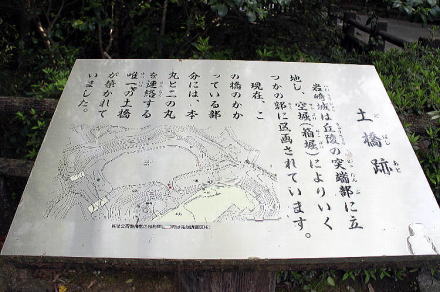 土橋跡
岩崎城は丘陵の突端部に立
地し、空堀(箱堀)によりいく
つかの郭に区画されています。
現在、こ
の橋のかか
っている部
分には、本
丸と二の丸
を連絡する
唯一の土橋
が築かれて
いました。